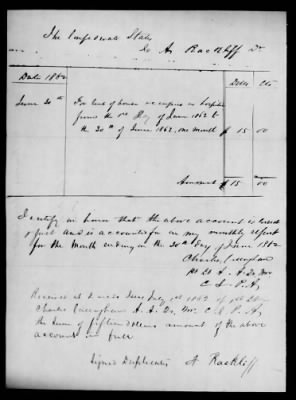 The Confederate States
To A. Rackliff Dr
Date 1862 Dolls Cts
June 30th For rent of house occupied as hospital
from the 1st day of June 1862 to
the 30th of June 1862, one month $ 15 00
Amount $ 15 00
I certify on honor that the above account is correct
& just and is accounted for on my monthly report
for the month ending on the 30th day of June 1862
Charles
A. A. Qr. Mr.
C. S. P. A.
Received at July 1st 1862 of
Charles A. A. Qr. Mr. C. S. P. A.
the sum of fifteen dollars amount of the above
account in full
Signed Duplicates A Rackliff